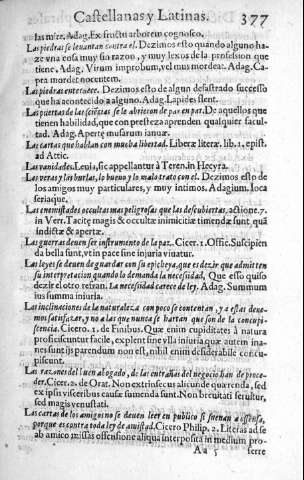 Castellanas y Latinas. 377
las mʼrē. Adag. Ex fructu arborem cognosco.
Las piedras se leuantan contra el. Dezimos esto quando alguno ha-
ze vna cosa muy sin razon, y muy lexos de la profession que
tiene, Adag. Virum improbum, vel mus mordeat. Adag. Ca-
pra mordet nocentem.
Las piedras enternece. Dezimos esto de algun desastrado successo
que ha acontecido a alguno. Adag. Lapides flent.
Las puertas de las sciēcias se le abrieron de par en par. De aquellos que
tienen habilidad, que con presteza aprenden qualquier facul-
tad. Adag. Apertę musarum ianuæ.
Las cartas que hablan con mucha libertad. Liberæ literæ. lib. 1. epist.
ad Attic.
Las vanidades. Leuia, sic appellantur à Teren. in Hecyra.
Las veras y las burlas, lo bueno y lo malo trato con el. Dezimos esto de
los amigos muy particulares, y muy intimos. Adagium. Ioca
seriaque.
Las enemistades occultas mas peligrosas que las descubiertas, actione. 7.
in Verr. Tacitę magis & occultæ inimicitiæ timendæ sunt, quā
indictæ & apertæ.
Las guerras deuen ser instrumento de la paz. Cicer. 1. Offic. Suscipien
da bella sunt, vt in pace sine iniuria viuatur.
Las leyes se deuen de guardar con su epicheya. que es dezir que admitten
su interpretation quando lo demanda la necessidad, Que esso quiso
dezir el otro refran. La necessidad carece de ley. Adag. Summum
ius summa iniuria.
Las inclinaciones de la naturaleza con poco se contentan, y a estas deue-
mos satisfazer, y no a las que nunca se hartan que son de la concupi-
scencia. Cicero. 1. de Finibus. Quæ enim cupiditates à natura
proficiscuntur facile, explent sine vlla iniuria quæ autem ina-
nes sunt ijs parendum non est, nihil enim desiderabile concu-
piscunt.
Las razones del buen abogado, de las entrañas del negocio han de proce-
der. Cicer. 2. de Orat. Non extrinsecus alicunde quærenda, sed
ex ipsis visceribus causæ sumenda sunt. Non breuitati seruitur,
sed magis venustati.
Las cartas de los amigos no se deuen leer en publico si suenan a offensa,
porque es contra toda ley de amistad. Cicero Philip. 2. Literas ad se
ab amico missas offensione aliqua interposita in medium pro-
Aa 5 ferre